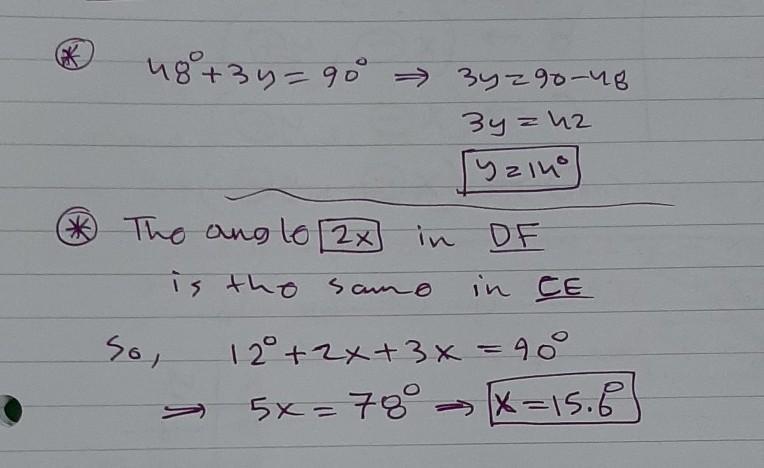 * 48°+3y=90° ⇒ 3y=90-48
3y=42
y=14°
* The angle 2x in DF
is the same in CE
So, 12°+2x+3x=90°
⇒ 5x=78° ⇒ x=15.6°